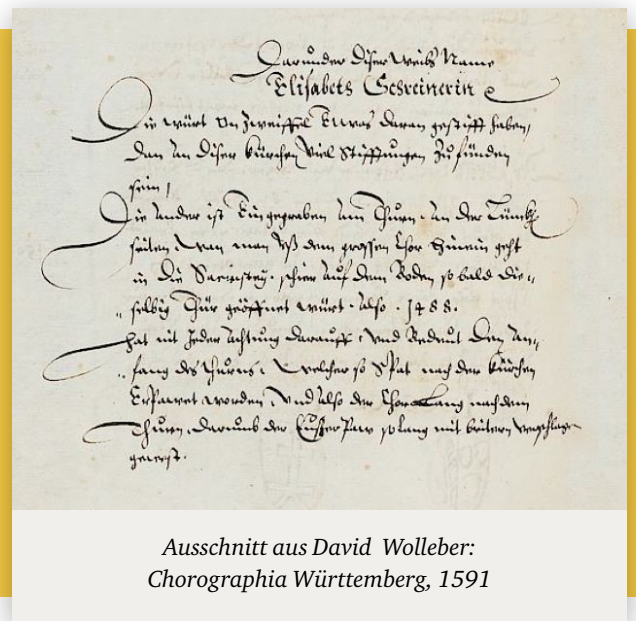 Darunder diser weibs Name
Elisabets Gesreinerin
Die würt on zweiffel Etwas daran gestifft haben,
dan an diser kürchen viel Stifftungen zu fünden
sein,
Die ander ist Eingegraben am Thurn, an der Lünckh
seiten, wan man vß dem grossen Chor hinein geht
in die Sacristey, schier auf dem Boden so bald die„
„selbig Thür geöffnet würt, also. 1488.
hat nit Jeder achtung darauff, vnd Bedeut den An„
„fang des thurns, welcher so Spat nach der kürchen
Erbawet worden, vnd also der Chor Lang nach dem
Thurn, darumb der Eusser Paw so lang mit brittern verschlagen
gewest.
Ausschnitt aus David Wolleber:
Chorographia Württemberg, 1591